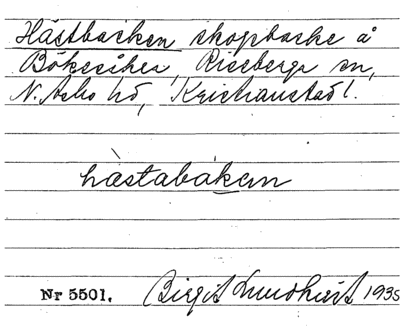 Hästbacken skogbacke å
Bökesåker, Riseberga sn,
N. Asbo hd, Kristianstad l.
hàstabàkan
Nr 5501. Birgit Lundkvist 1935